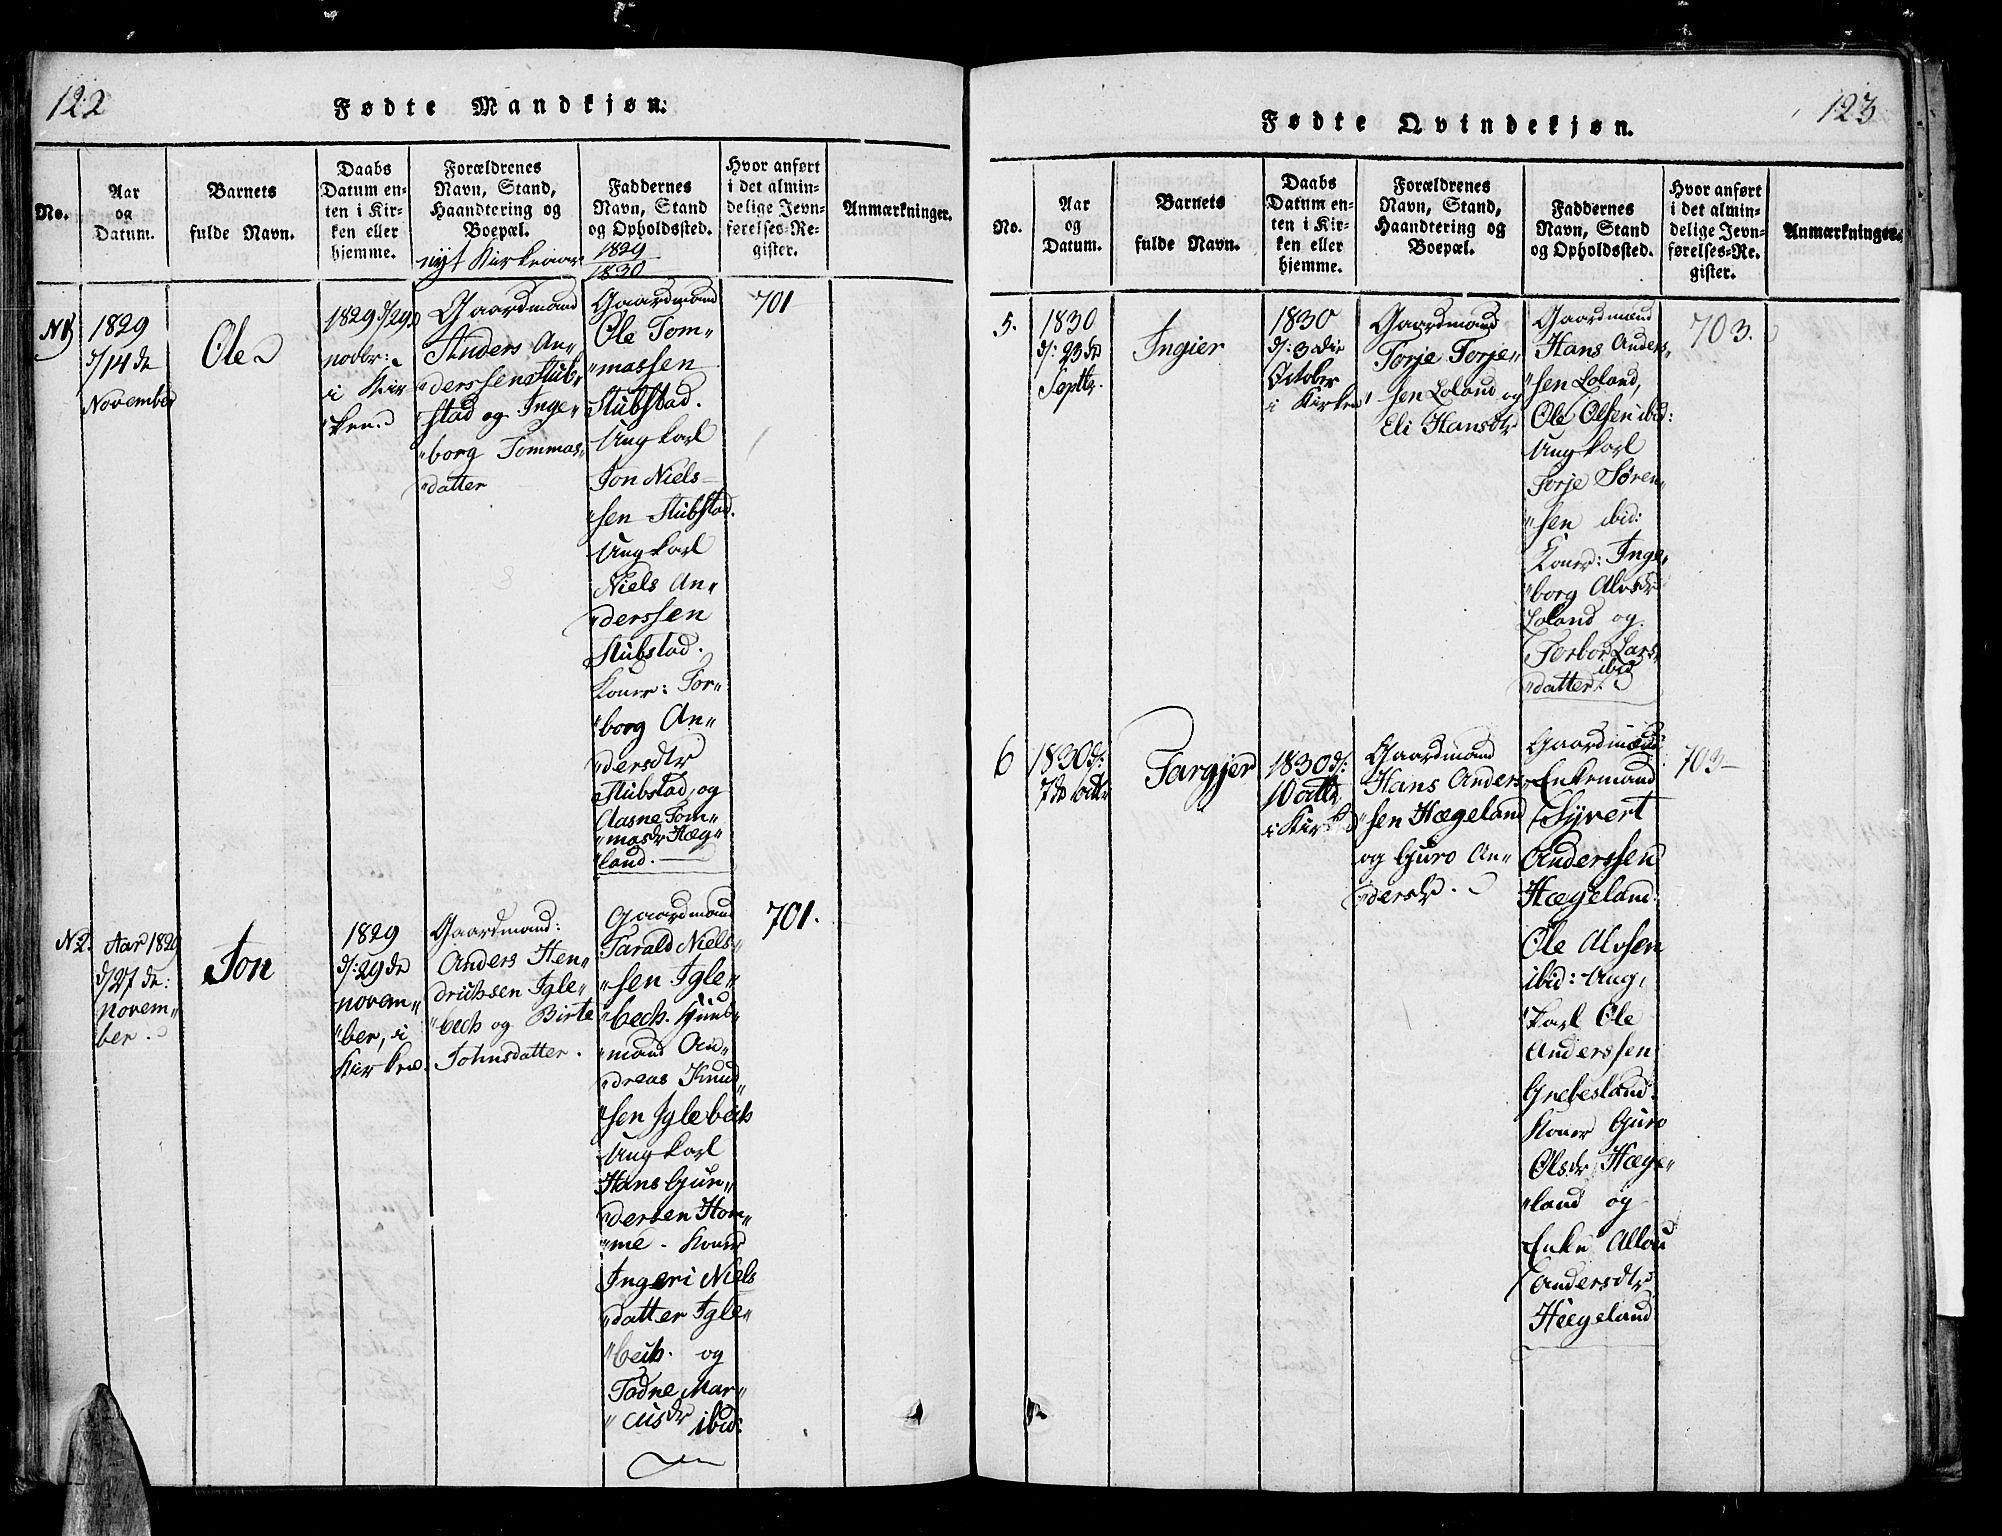 122
Fødte Mandkjøn.
No.
Aar
og
Datum.
Barnets
fulde Navn.
Daabs
Datum en-
ten i Kir-
ken eller
hjemme.
Forældrenes
Navn, Stand,
Haandtering og
Boepæl.
nyt Kirkeaar
Faddernes
Navn, Stand
og Opholdssted.
1829
1830
Hvor anført
i det almin-
delige Jevn-
førelses-Re-
gister.
Anmærkninger.
N1
1829
d/14 de
November
Ole
1829 d/29de
novbr:
i Kir
"ken.
Gaardmand
Anders An"
"derssen Stub"
"stad og Inge"
"borg Tommas"
"datter
Gaardmand
Ole Tom"
"massen
Stubstad.
Ungkarl
Jon Niels-
"sen Stubstad.
Ungkarl
Niels An"
"derssen
Stubstad.
Koner: Tor"
"borg An"
"dersdtr
Stubstad, og
Aasne Tom"
"masdr Hæg"
"land.
701
N2.
Aar 1829
d/27 de:
novem"
ber.
Jon
1829
d/:29 de
novem"
"ber, i
Kirken:
Gaardmand:
Anders Hen"
drichsen Igle"
"bech og Birte
Johnsdatter.
Gaardmand
Tarald Niels"
"sen Igle"
"bech. Huus"
"mand An"
"dreas Knud"
"sen Iglebech
Ungkarl
Hans Gun"
"dersen Hom"
"me. Koner
Ingeri Niels
"datter Igle"
"bech. og
Todne Mar"
"cusdr ibid:
701.
123
Fødte Qvindekjøn.
No.
Aar
og
Datum.
Barnets
fulde Navn.
Daabs
Datum en-
ten i Kir-
ken eller
hjemme.
Forældrenes
Navn, Stand,
Haandtering og
Boepæl.
Faddernes
Navn, Stand
og Opholdssted.
Hvor anført
i det almin-
delige Jevn-
førelses-Re-
gister.
Anmærkninger.
5.
1830
d/: 23 de
Septbr.
Ingier
1830
d/: 3 die
October
i Kirken
Gaardmand
Torje Torje"
"sen Loland og
Eli Hansdtr
Gaardmand
Hans Anders"
"sen Loland,
Ole Olsen ibid:
Ungkarl
Torje Søren"
"sen ibid:
Koner: Inge"
"borg Alvsdr
Loland og
Torbor Lars"
"datter. ibid
703.
6
1830 d/:
7de octbr
Targjer
1830 d/:
10 octbr
i Kirken
Gaardmand
Hans Anders
"sen Hægeland
og Guro An"
"dersdr.
Gaardmænd
Enkemand
Syvert
Anderssen
Hægeland.
Ole Alvsen
ibid: Ung,
"karl Ole
Anderssen
Grebesland.
Koner Guro
Olsdr Hæge"
"land og
Enke Allou
Andersdtr
Hægeland
703